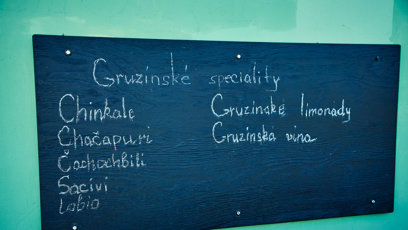 Gruzínské speciality
Chinkale
Chačapuri
Čachochbili
Sacivi
Lobio
Gruzínské limonady
Gruzínska vina